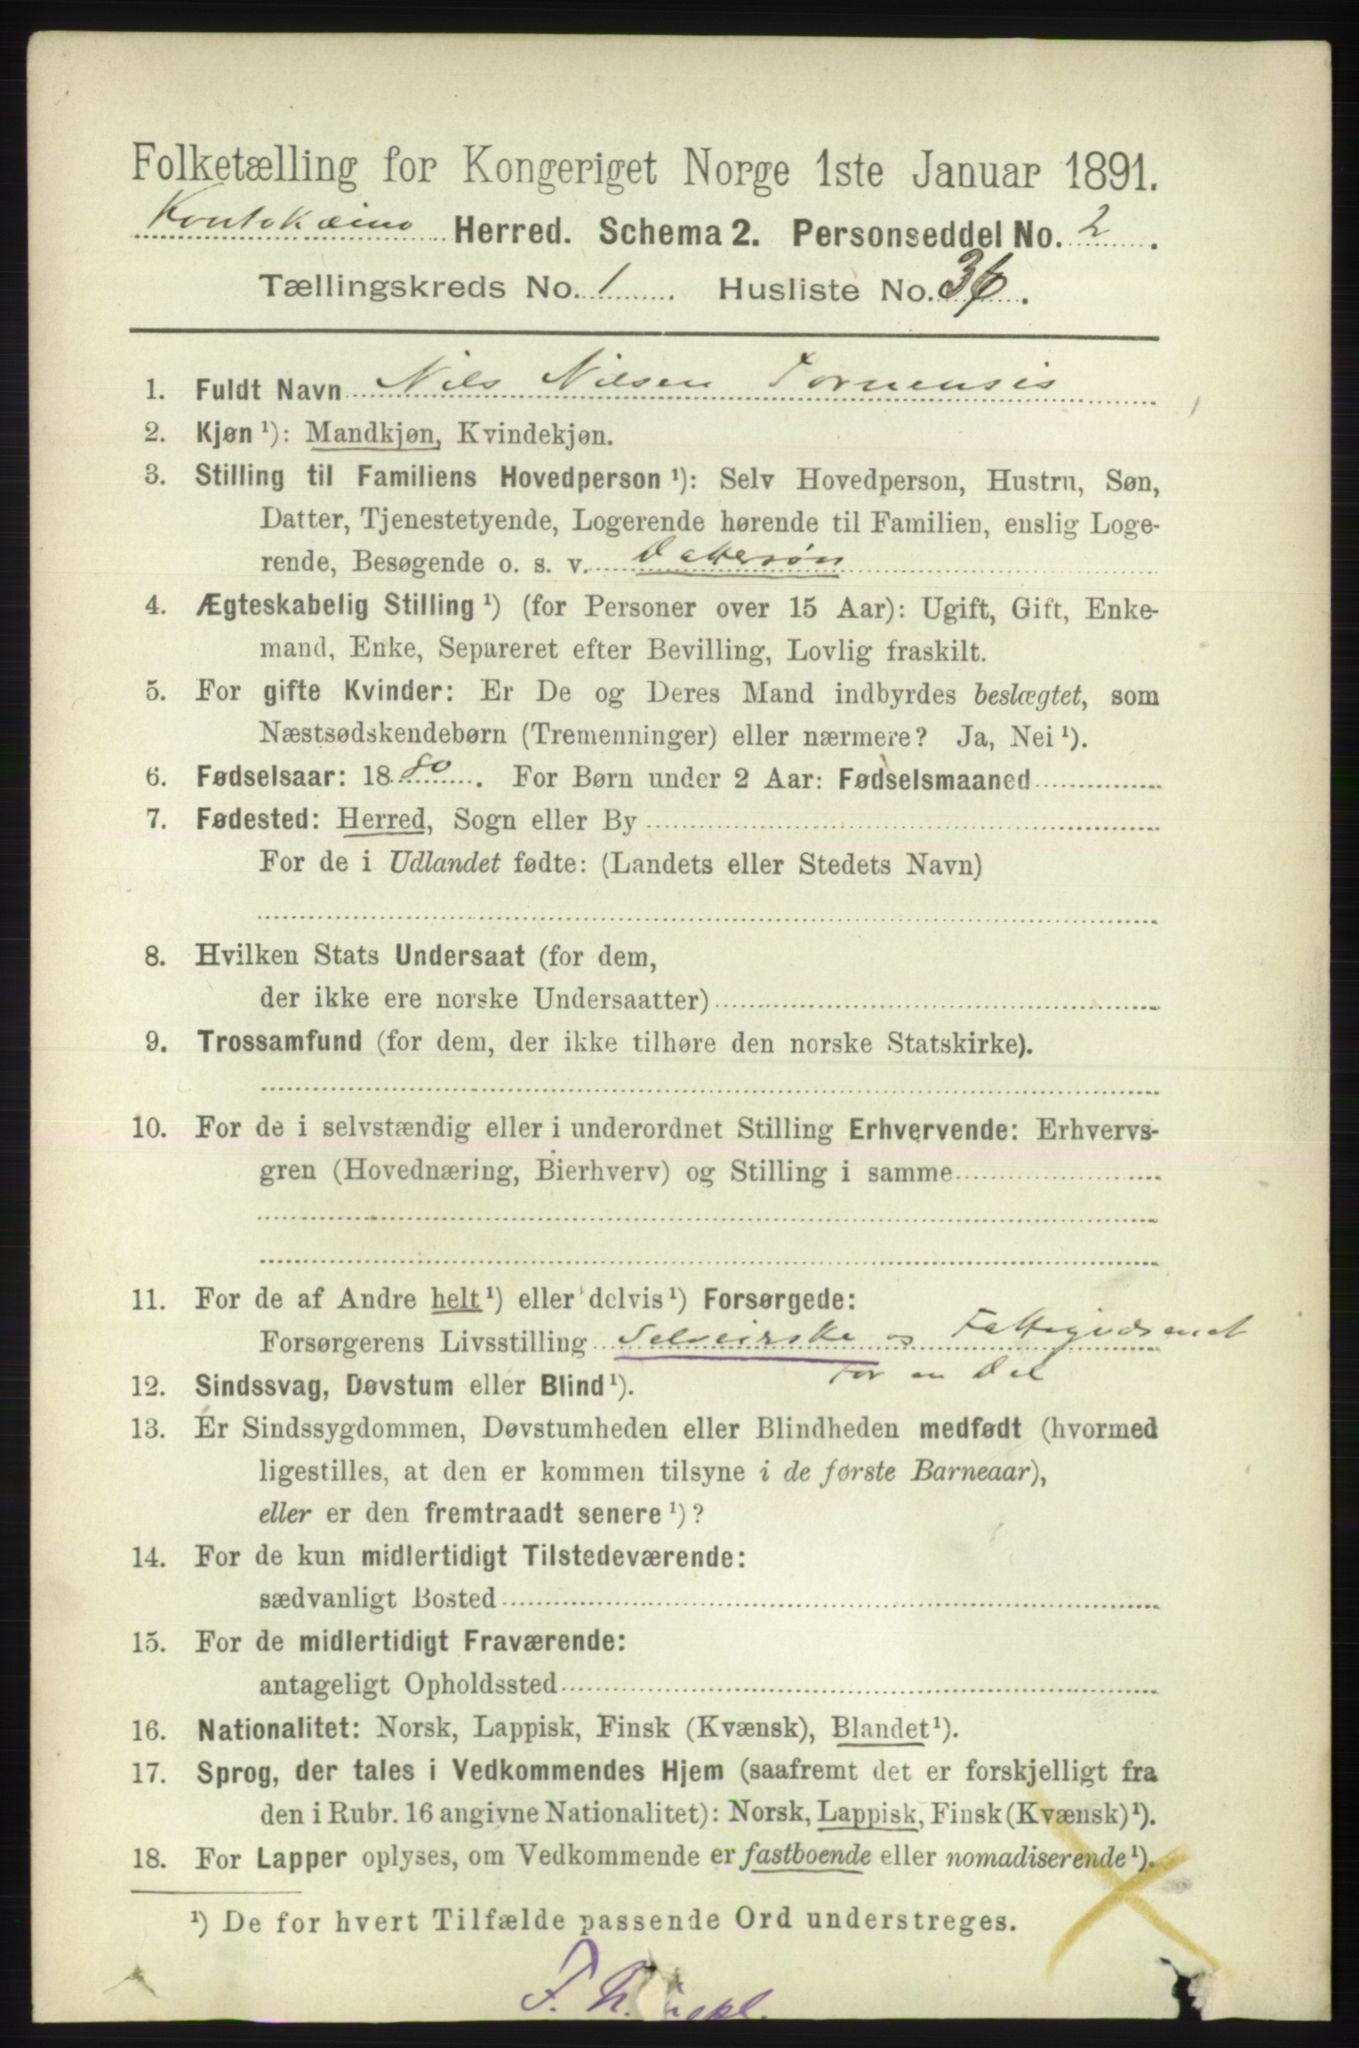 Folketælling for Kongeriget Norge 1ste Januar 1891.
Koutokæino Herred. Schema 2. Personseddel No. 2.
Tællingskreds No. 1. Husliste No. 36.
1. Fuldt Navn Nils Nilsen Tornensis
2. Kjøn ¹): Mandkjøn, Kvindekjøn.
3. Stilling til Familiens Hovedperson ¹): Selv Hovedperson, Hustru, Søn,
Datter, Tjenestetyende, Logerende hørende til Familien, enslig Loge-
rende, Besøgende o. s. v. Dattersøn
4. Ægteskabelig Stilling ¹) (for Personer over 15 Aar): Ugift, Gift, Enke-
mand, Enke, Separeret efter Bevilling, Lovlig fraskilt.
5. For gifte Kvinder: Er De og Deres Mand indbyrdes beslægtet, som
Næstsødskendebørn (Tremenninger) eller nærmere? Ja, Nei ¹).
6. Fødselsaar: 1880. For Børn under 2 Aar: Fødselsmaaned
7. Fødested: Herred, Sogn eller By
For de i Udlandet fødte: (Landets eller Stedets Navn)
8. Hvilken Stats Undersaat (for dem,
der ikke ere norske Undersaatter)
9. Trossamfund (for dem, der ikke tilhøre den norske Statskirke).
10. For de i selvstændig eller i underordnet Stilling Erhvervende: Erhvervs-
gren (Hovednæring, Bierhverv) og Stilling i samme
11. For de af Andre helt ¹) eller delvis ¹) Forsørgede:
Forsørgerens Livsstilling Selveierske og Fattigvæsenet
for en Del
12. Sindssvag, Døvstum eller Blind ¹).
13. Er Sindssygdommen, Døvstumheden eller Blindheden medfødt (hvormed
ligestilles, at den er kommen tilsyne i de første Barneaar),
eller er den fremtraadt senere ¹)?
14. For de kun midlertidigt Tilstedeværende:
sædvanligt Bosted
15. For de midlertidigt Fraværende:
antageligt Opholdssted
16. Nationalitet: Norsk, Lappisk, Finsk (Kvænsk), Blandet ¹).
17. Sprog, der tales i Vedkommendes Hjem (saafremt det er forskjelligt fra
den i Rubr. 16 angivne Nationalitet): Norsk, Lappisk, Finsk (Kvænsk) ¹).
18. For Lapper oplyses, om Vedkommende er fastboende eller nomadiserende ¹).
¹) De for hvert Tilfælde passende Ord understreges.